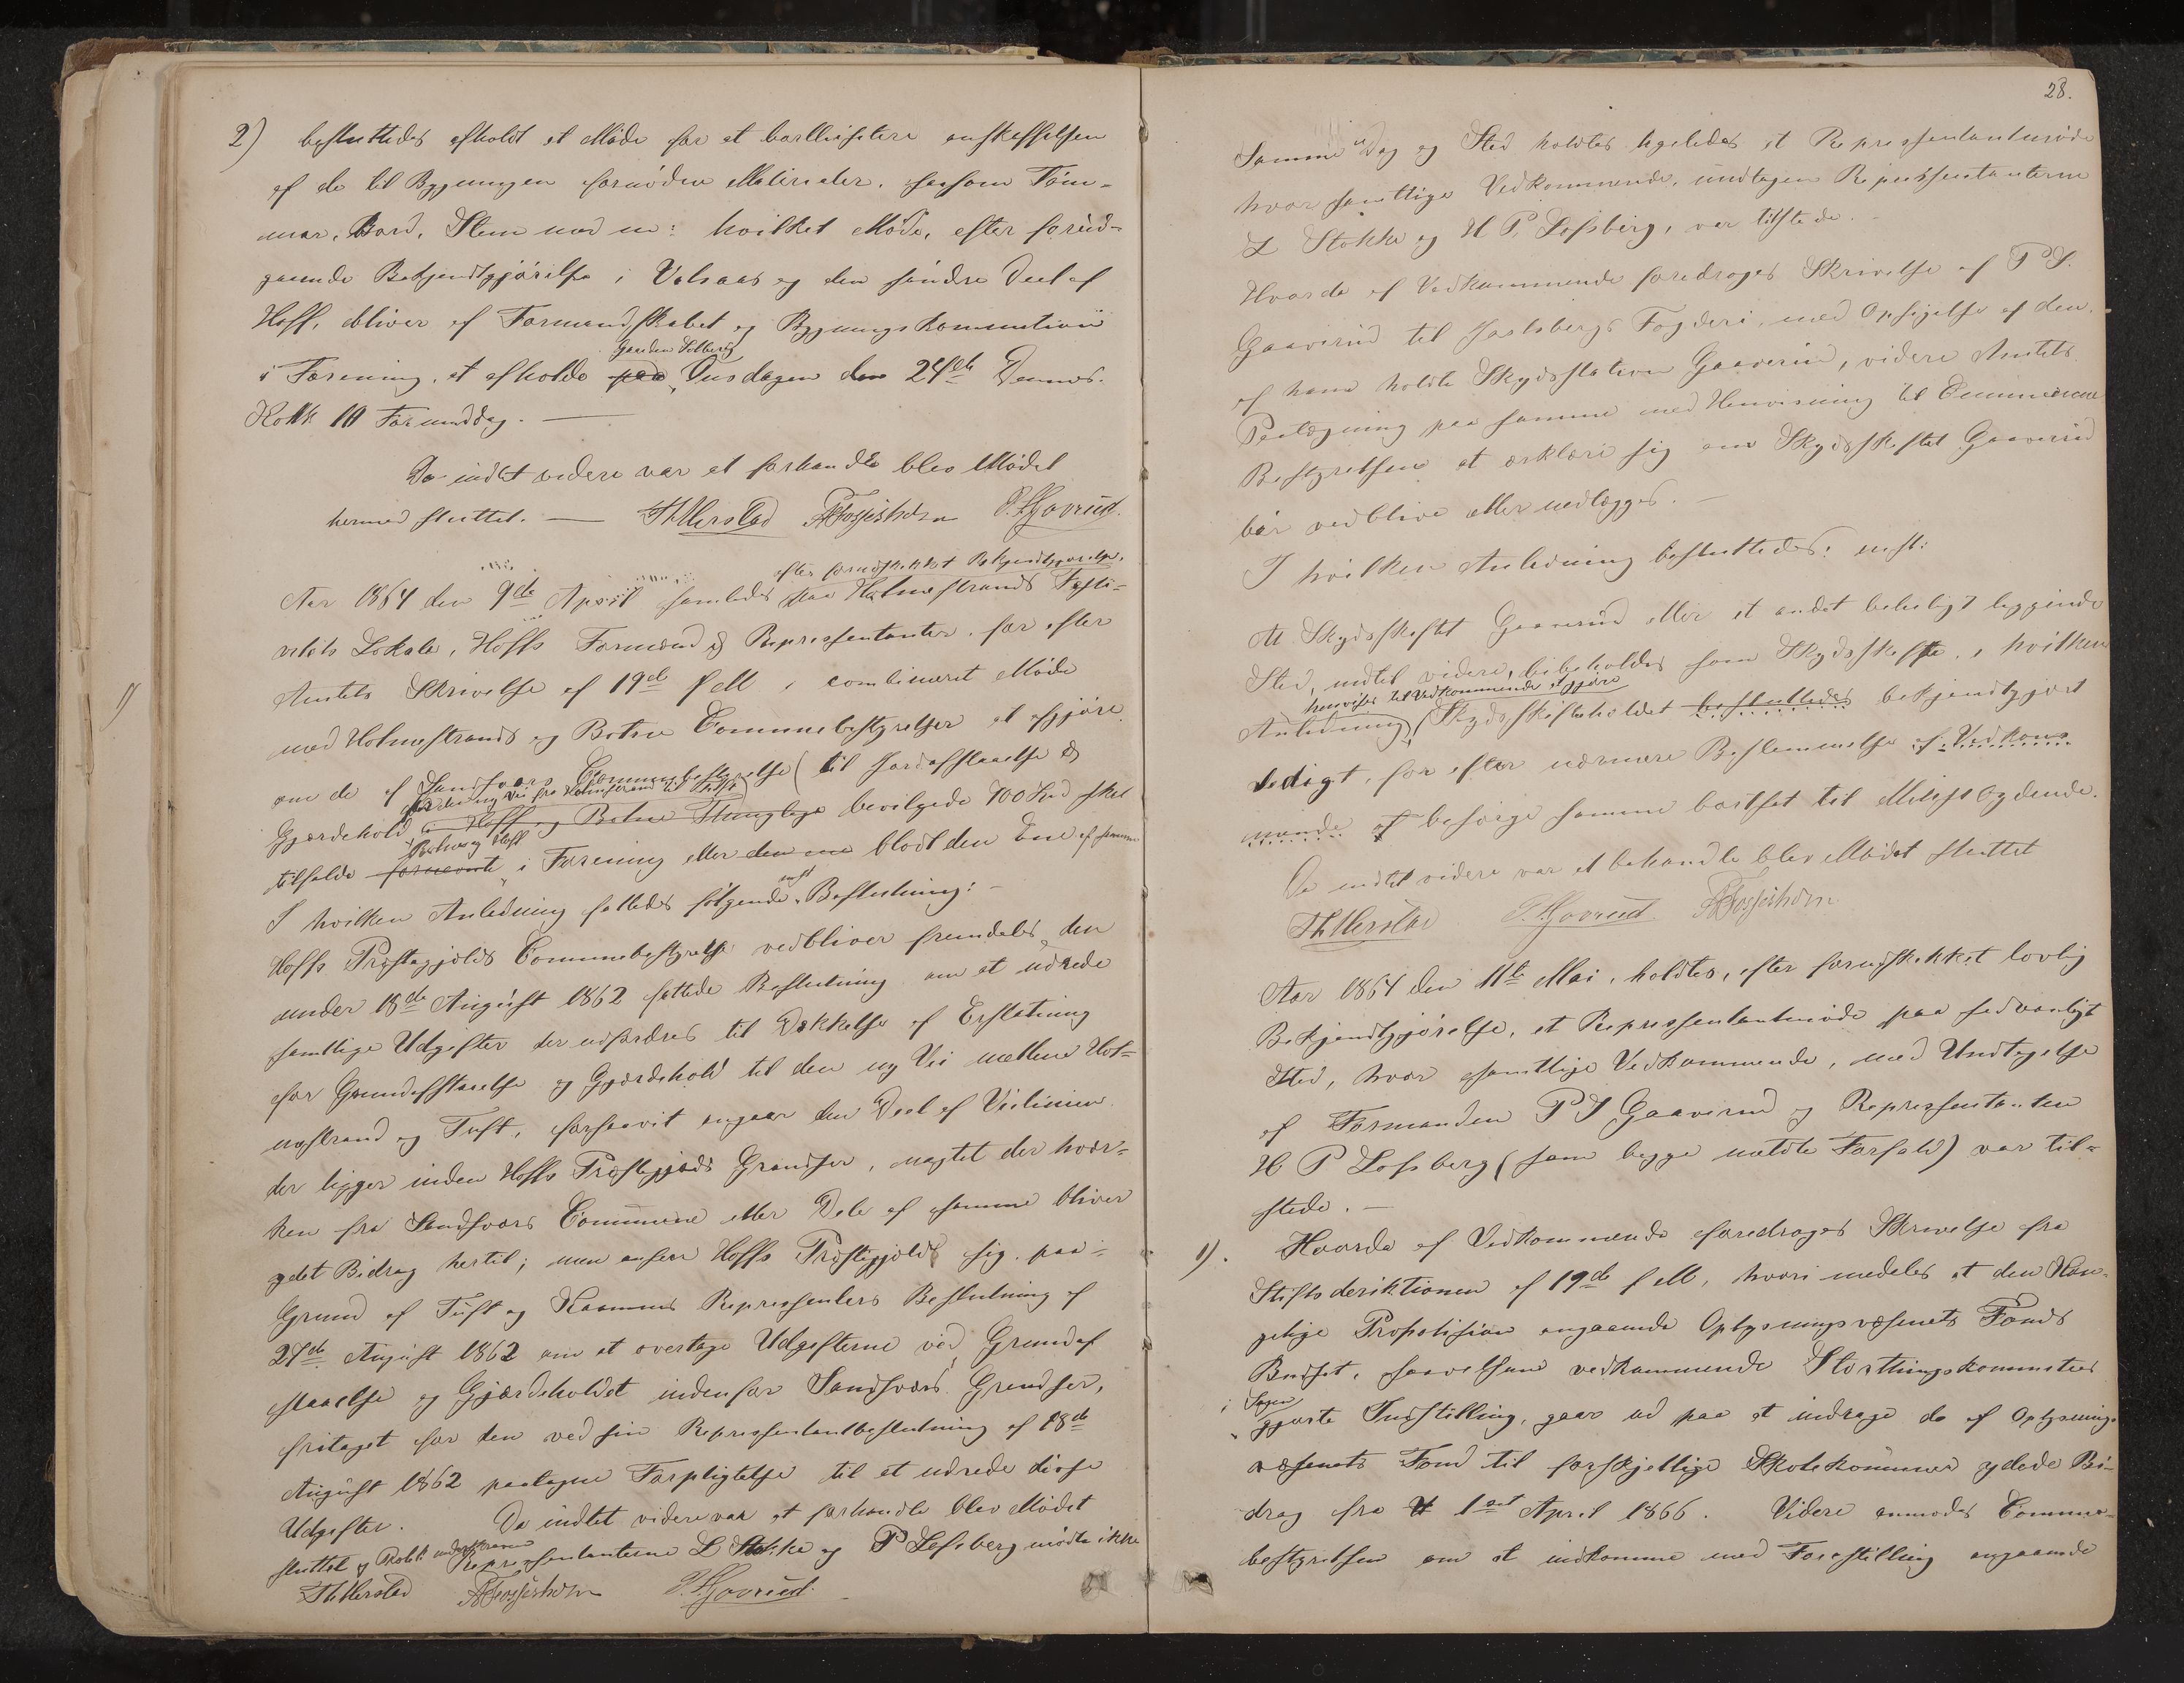 2) besluttedes afholdt et Møde for at bortlicitere anskaffelsen
af de til Bygningen fornødne Materialer, saasom Tøm-
mer, Bord, Steen med m: hvilket Møde, efter forud-
gaaende Bekjendtgjørelse i Valsaas og den søndre Deel af
Hoff, bliver af Formandskabet og Bygningskommutionen
Gaarden Solberg
i Forening, at afholde paa Onsdagen den 24de Dennes.
Kokk 10 Formiddag. —
Da indtet videre var at forhandle blev Mødet
hermed sluttet. — Th Ulerstad Fossesholm P. Gaverud.
efter forudskikket Bekjendtgjørelse,
Aar 1864 den 9de April samledes paa Holmestrands Festi-
vitets Lokale, Hoffs Formænd og Repræsentanter, for efter
1) Amtets Skrivelse af 19de f M i combineret Møde
med Holmestrands og Botne Communebestyrelser at afgjøre
om de af Sandsværs Communebestyrelse (til Jordafstaaelse &
for den ny Vei fra Holmestrand til Tufte)
Gjærdehold i Hoff og Botne Thinglage bevilgede 100 Spd skal
Botne og Hoff
tilfalde fornevnte i Forening eller den ene blodt den Ene af samme
enst
I hvilken Anledning fattedes følgende Beslutning: —
Hoffs Præstegjelds Communebestyrelse vedbliver fremdeles den
under 18de August 1862 fattede Beslutning om at udrede
samtlige Udgifter der udfordres til Dækkelse af Erstatning
for Grundafstaaelse og Gjærdehold til den ny Vei mellem Hol-
mestrand og Tuft, forsaavit angaar den Deel af Veilinien
der ligger inden Hoffs Præstegjelds Grændser, uagtet der hver-
ken fra Sandsvers Commune eller Dele af samme bliver
ydet Bidrag hertil; men anseer Hoffs Præstegjeld sig paa
Grund af Tuft og Repræsenters Beslutning af
27de August 1862 om at overtage Udgifterne ved Grundaf
staaelse og Gjærdeholdet indenfor Sandsvers Grendser,
fritaget for den ved sin Repræsentantbeslutning af 18de
August 1862 paatagne Forpligtelse til at udrede disse
Udgifter. Da indtet videre var at forhandle blev Mødet
sluttet og Prokl underskreven Repræsentanterne L Stokke og P Lefsberg mødte ikke
Th Ulerstad Fossesholm P. Gaverud.
28.
Samme Dag og Sted holdtes ligeledes et Repræsentantmøde
hvor samtlige Vedkommende, undtagen Repræsentanterne
L Stokke og H P. Lefsberg, var tilstede. —
Hvorda af Vedkommende foredroges Skrivelse af P S.
Gaaverud til Jarlsbergs Fogderi, med Opsigelse af den
af ham holdte Skydsstation Gaaverud, videre Amtets
Paategning paa samme med Henvisning til Commune
Bestyrelsen at erklære sig om Skydsskiftet Gaaverud
bør vedblive eller nedlægges. —
I hvilken Anledning besluttedes: enst:
At Skydsskiftet Gaaverud eller et andet beleiligt liggende
Sted, indtil videre, bibeholdes som Skydsskifte, i hvilken
henvises til Vedkommende at gjøre
Anledning Skydsskifteholdet besluttedes bekjendtgjort
ledigt, for efter nærmere Bestemmelse af Vedkom
mende at besørge samme bortsat til Mindstbydende.
Da indtet videre var at behandle blev Mødet sluttet
Th Ulerstad P. Gaverud. Fossesholm
Aar 1864 den 11te Mai, holdtes, efter forudskikket lovlig
Bekjendtgjørelse, et Repræsentantmøde paa sedvanligt
Sted, hvor samtlige Vedkommende, med Undtagelse
af Formanden P S Gaaverud og Repræsentanten
H P Lofsberg (som begge meldte Forfald) var til-
stede. —
1). Hvorda af Vedkommende foredroges Skrivelse fra
Stiftsdirektionen af 19de f M, hvori medeles at den Kon-
gelige Proposition angaaende Oplysningsvæsenets Fonds
Budjet, saavelsom vedkommende Storthingskommitees
i Sagen
gjorte Indstilling, gaar ud paa at inddrage de af Oplysnings
væsenets Fond til forskjellige Skolekommuner ydede Bi-
drag fra 1ste April 1866. Videre anmodes Commune-
bestyrelsen om at indkomme med Forestilling angaaende